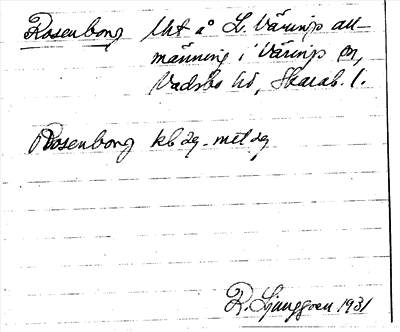 Rosenborg Uht å L. Väringe all-
männing i Väringe sn,
Vadsbo hd, Skarab. l.
Rosenborg kb äg. met äg
R. Ljunggren 1931